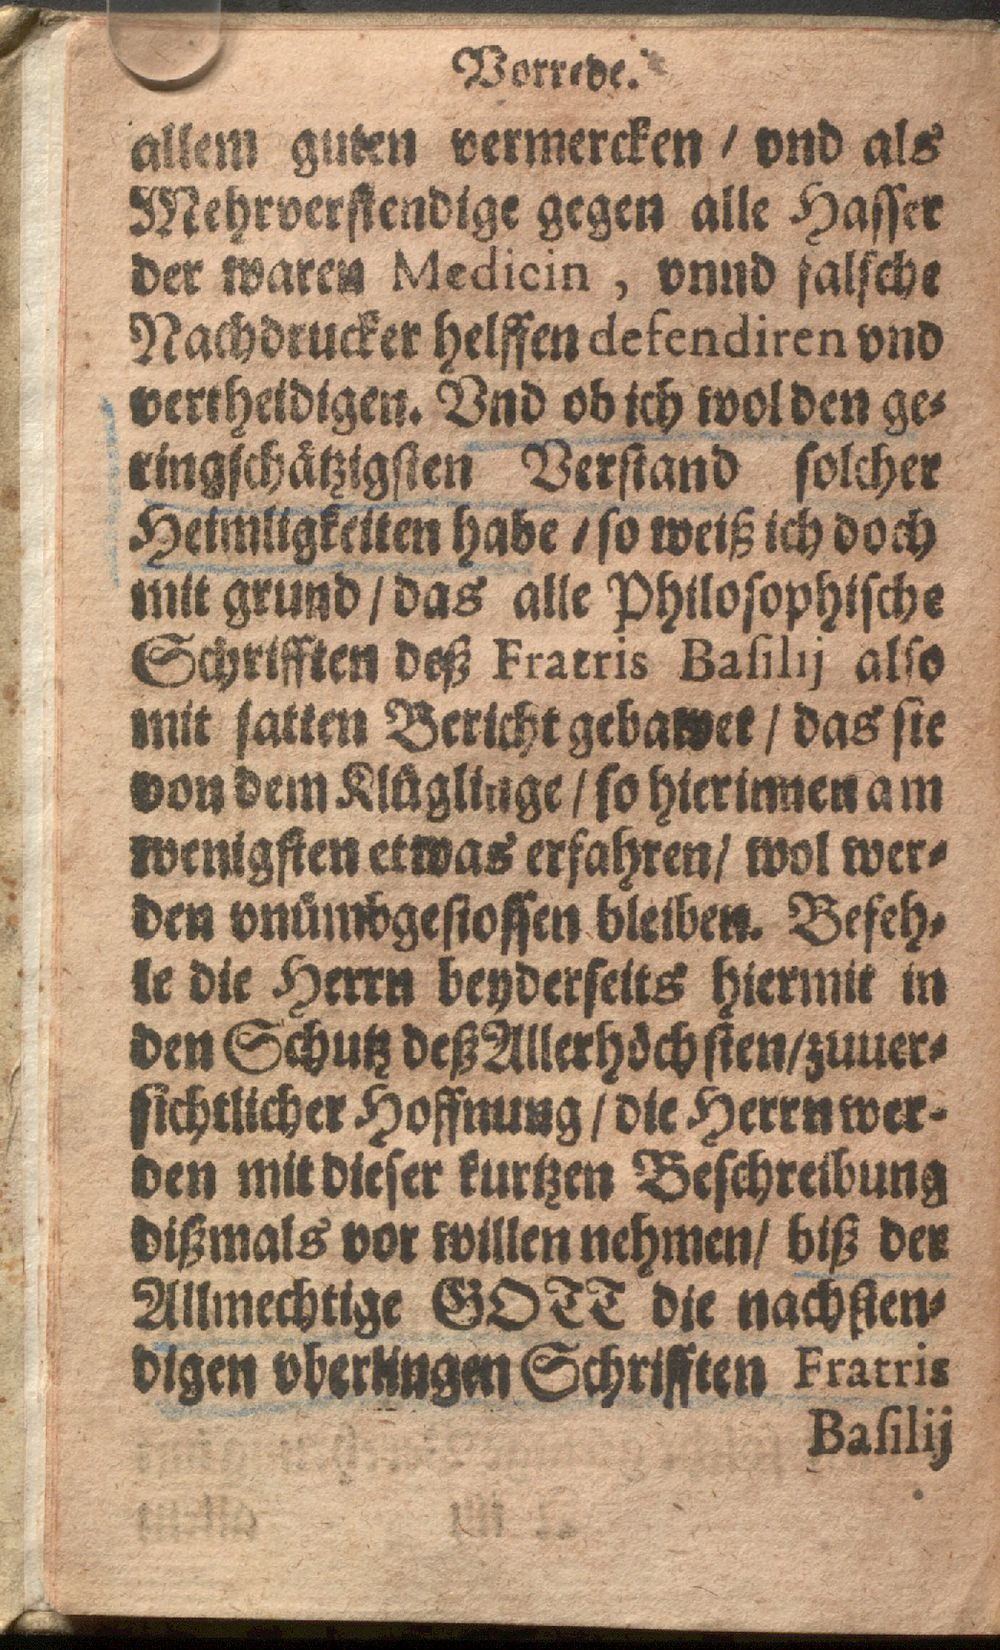 Vorrede.
allem guten vermercken / vnd als
Mehrverstendige gegen alle Hasser
der waren Medicin, vnnd falsche
Nachdrucker helffen defendiren vnd
vertheidigen. Vnd ob ich wol den ge-
ringschätzigsten Verstand solcher
Heimligkeiten habe / so weiß ich doch
mit grund / das alle Philosophische
Schrifften deß Fratris Basilij also
mit satten Bericht gebawet / das sie
von dem Klüglinge / so hierinnen am
wenigsten etwas erfahren / wol wer-
den vnümbgestossen bleiben. Befeh-
le die Herrn beyderseits hiermit in
den Schutz deß Allerhöchsten / zuuer-
sichtlicher Hoffnung / die Herrn wer-
den mit dieser kurtzen Beschreibung
dißmals vor willen nehmen / biß der
Allmechtige GOTT die nachsten-
digen vberigen Schrifften Fratris
Basilij